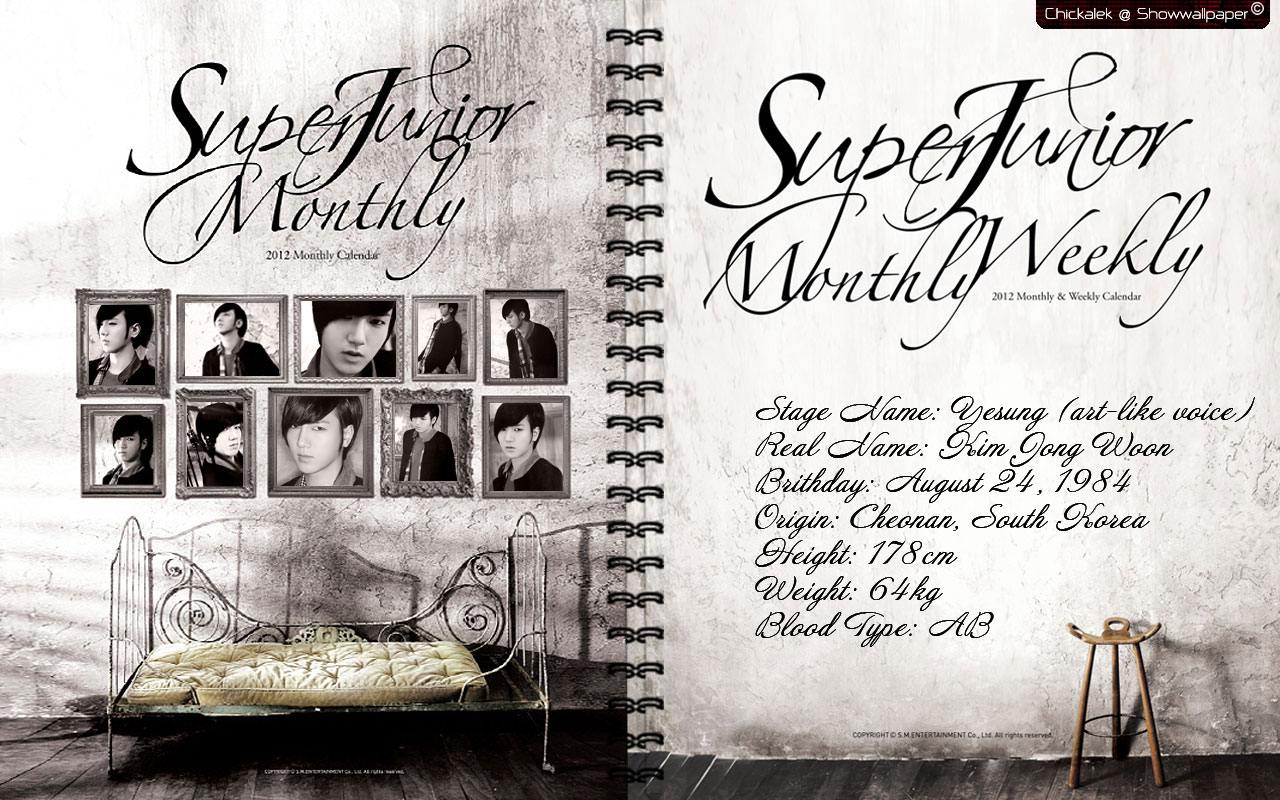 Chickalek @ Showwallpaper©
Super Junior
Monthly
2012 Monthly Calendar
COPYRIGHT © S.M.ENTERTAINMENT Co., Ltd. All rights reserved.
Super Junior
Monthly Weekly
2012 Monthly & Weekly Calendar
Stage Name: Yesung (art-like voice)
Real Name: Kim Jong Woon
Brithday: August 24, 1984
Origin: Cheonan, South Korea
Height: 178cm
Weight: 64kg
Blood Type: AB
COPYRIGHT © S.M.ENTERTAINMENT Co., Ltd. All rights reserved.